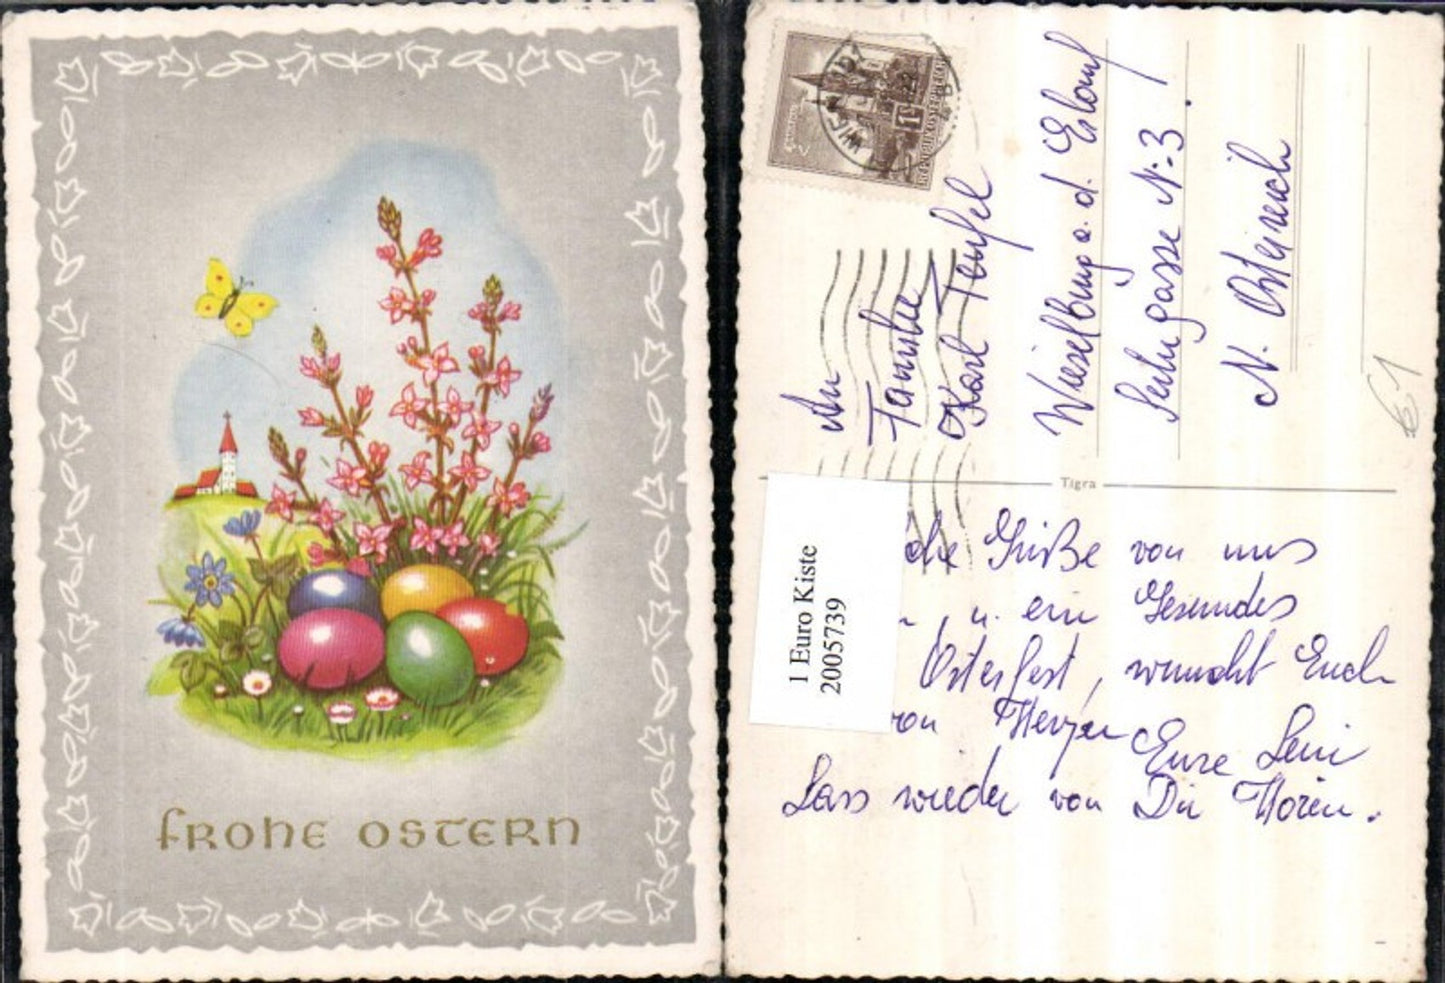 FROHE OSTERN
WIEN
1 S
REPUBLIK ÖSTERREICH
An
Familie
Karl Teufel
Wieselburg a. d. Erlauf
N: 3.
N. Österreich
€1
Tigra
1 Euro Kiste
2005739
Grüße von uns
, u. ein Gesundes
Osterfest, wünscht Euch
von Herzen Eure Leni
Lass wieder von Dir Hören.